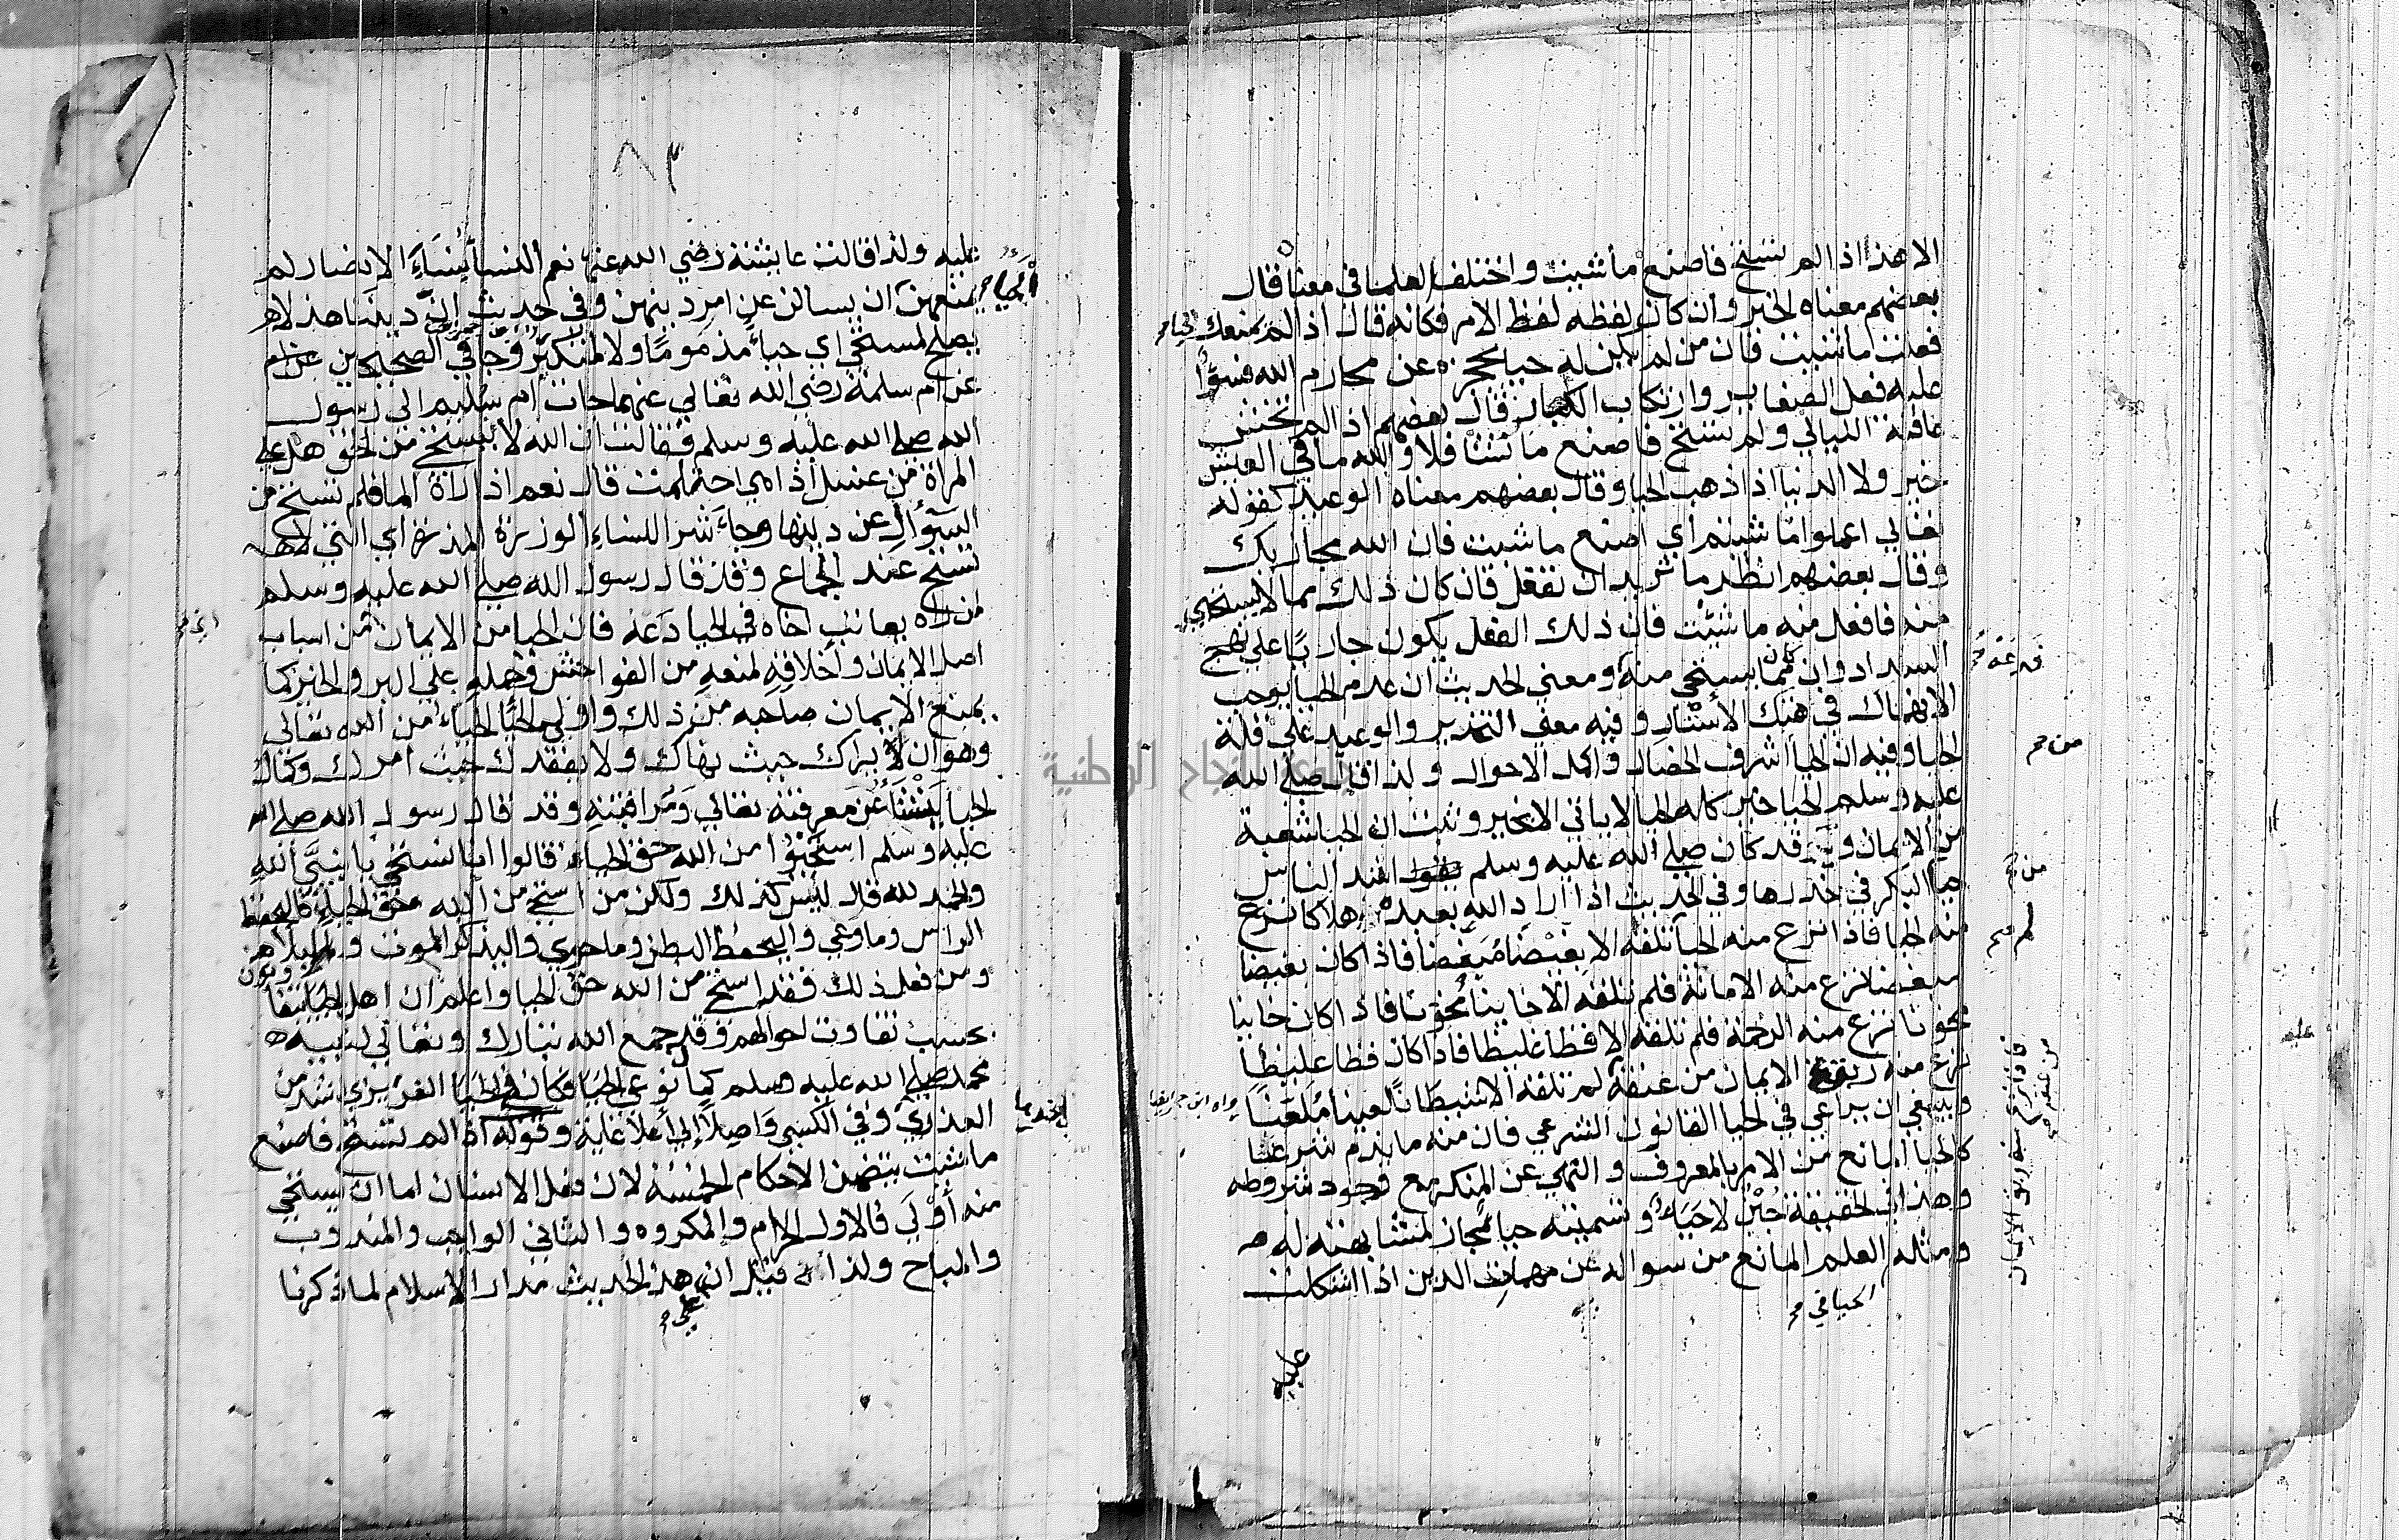 الا هذا اذا لم تستح فاصنع ما شيت واختلف العلما في معناه فقال
بعضهم معناه الخبر وان كان لفظه لفظ الامر فكانه قال اذا لم يمنعك الحيا
فعلت ما شيت فان من لم يكن له حيا يحجزه عن محارم الله فسوأ
عليه فعل الصغاير وارتكاب الكباير قال بعضهم اذا لم تخش
عاقبة الليالي ولم تستح فاصنع ما تشا فلا والله ما في العيش
خير ولا الدنيا اذا ذهب الحيا وقال بعضهم معناه الوعيد كقوله
تعالي اعملوا ما شيتم اي اصنع ما شيت فان الله مجازيك
وقال بعضهم انظر ما تريد ان تفعل فان كان ذلك مما لا يستحيي
منه فافعل منه ما شيت فان ذلك الفعل يكون جاريًا علي نهج
السداد وان كان مما يستحي منه فدعه ومعني الحديث ان عدم الحيا يوجب
الانهماك في هتك الاستار وفيه معني التحذير والوعيد علي قلة
الحيا وفيه ان الحيا اشرف الخصال واكمل الاحوال ولذا قال صلي الله
عليه وسلم الحيا خير كله الحيا لا ياتي الا بخير وثبت ان الحيا شعبة
من الايمان وقد كان صلي الله عليه وسلم اشد الناس
حيا من البكر في خدرها وفي الحديث اذا اراد الله بعبد هلاكا نزع
منه الحيا فاذا نزع منه الحيا لم تلقه الا بغيضا مبغضا فاذا كان بغيضا
مبغضا نزع منه الامانة فلم تلقه الا خاينا مخونا فاذا كان خاينا
مخونا نزع منه الرحمة فلم تلقه الا فظا غليظا فاذا كان فظا غليظًا
نزع منه ربقة الايمان من عنقه لم تلقه الا شيطانًا لعينا ملعنًا
وينبغي ان يراعي في الحيا القانون الشرعي فان منه ما يذم شرعا
كالحيا المانع من الامر بالمعروف والنهي عن المنكر مع وجود شروطه
وهذا في الحقيقة جبن لا حياء وتسميته حيا مجاز لمشابهته له
ومثله الحيا في العلم المانع من سواله عن مهمات الدين اذا اشكلت
فاذا نزع منه ربقة الايمان
من عنقه
رواه ابن
عليه
٨٣
عليه ولذا قالت عايشة رضي الله عنها نعم النسا نساء الانصار لم
يمنعهن الحياء ان يسالن عن امر دينهن وفي حديث ان ديننا هذا لا
يصلح لمستحي اي حياء مذمومًا ولا لمتكبر وجا في الصحيحين
عن ام سلمة رضي الله تعالي عنها جات ام سليم الي رسول
الله صلي الله عليه وسلم فقالت ان الله لا يستحي من الحق هل علي
المراة من غسل اذا هي احتلمت قال نعم اذا رات الما فلم تستح من
السؤال عن دينها وجاء شر النساء الوزرة المذرة اي التي لا
تستح عند الجماع وقد قال رسول الله صلي الله عليه وسلم
لمن راه يعاتب اخاه في الحيا دعه فان الحيا من الايمان اي من اسباب
اصل الايمان واخلاقه لمنعه من الفواحش وحمله علي البر والخير كما
يمنع الايمان صاحبه من ذلك واولي الحيا الحياء من الله تعالي
وهو ان لا يراك حيث نهاك ولا يفقدك حيث امرك وكمال
الحيا ينشأ عن معرفته تعالي ومراقبته وقد قال رسول الله صلي الله
عليه وسلم استحيوا من الله حق الحياء قالوا انا نستحي يا نبي الله
والحمد لله قال ليس كذلك ولكن من استحي من الله حق الحياء فليحفظ
الراس وما وعي واليحفظ البطن وما حوي واليذكر الموت والبلا
ومن فعل ذلك فقد استح من الله حق الحيا واعلم ان اهل الحيا يتفاوتون
بحسب تفاوت احوالهم وقد جمع الله تبارك وتعالي لنبيه
محمد صلي الله عليه وسلم كمال نوعي الحيا فكان في الحيا الغريزي اشد من
العذري وفي الكسبي واصلًا الي اعلا غاية وقوله اذا لم تستح فاصنع
ما شيت يتضمن الاحكام الخمسة لان فعل الانسان اما ان يستحي
منه أو لي فالاول الحرام والمكروه والثاني الواجب والمندوب
والمباح ولذا قيل ان علي هذا الحديث مدار الاسلام لما ذكرنا